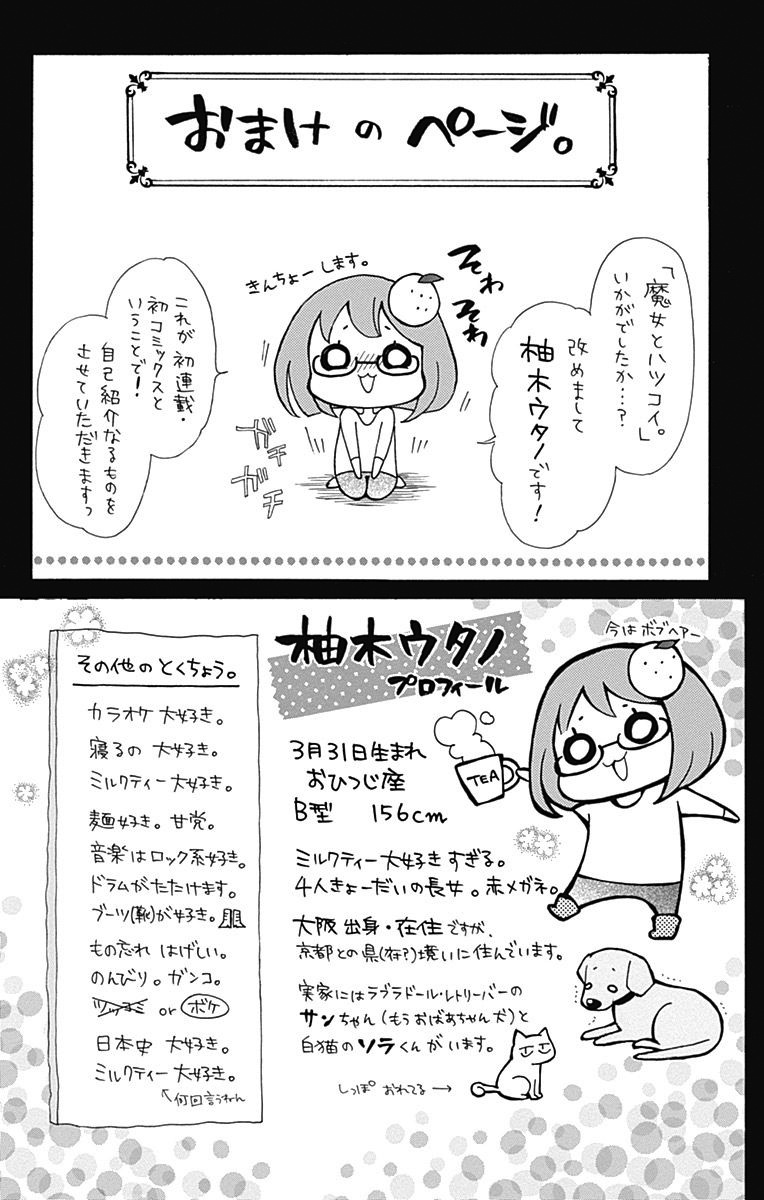 おまけのページ。
「魔女とハツコイ。」
いかがでしたか…?
改めまして
柚木ウタノです!
そわそわ
きんちょーします。
ガチガチ
これが初連載・
初コミックスと
いうことで!
自己紹介なるものを
させていただきますっ
柚木ウタノ
プロフィール
今はボブヘアー
TEA
3月31日生まれ
おひつじ座
B型 156cm
ミルクティー大好きすぎる。
4人きょーだいの長女。赤メガネ。
大阪出身・在住ですが、
京都との県(府?)境いに住んでいます。
実家にはラブラドール・レトリーバーの
サンちゃん(もうおばあちゃん犬)と
白猫のソラくんがいます。
しっぽ おれてる→
その他のとくちょう。
カラオケ 大好き。
寝るの 大好き。
ミルクティー 大好き。
麺好き。甘党。
音楽はロック系好き。
ドラムがたたけます。
ブーツ(靴)が好き。
もの忘れ はげしい。
のんびり。ガンコ。
ツッコミ or ボケ
日本史 大好き。
ミルクティー 大好き。
↖何回言うねん